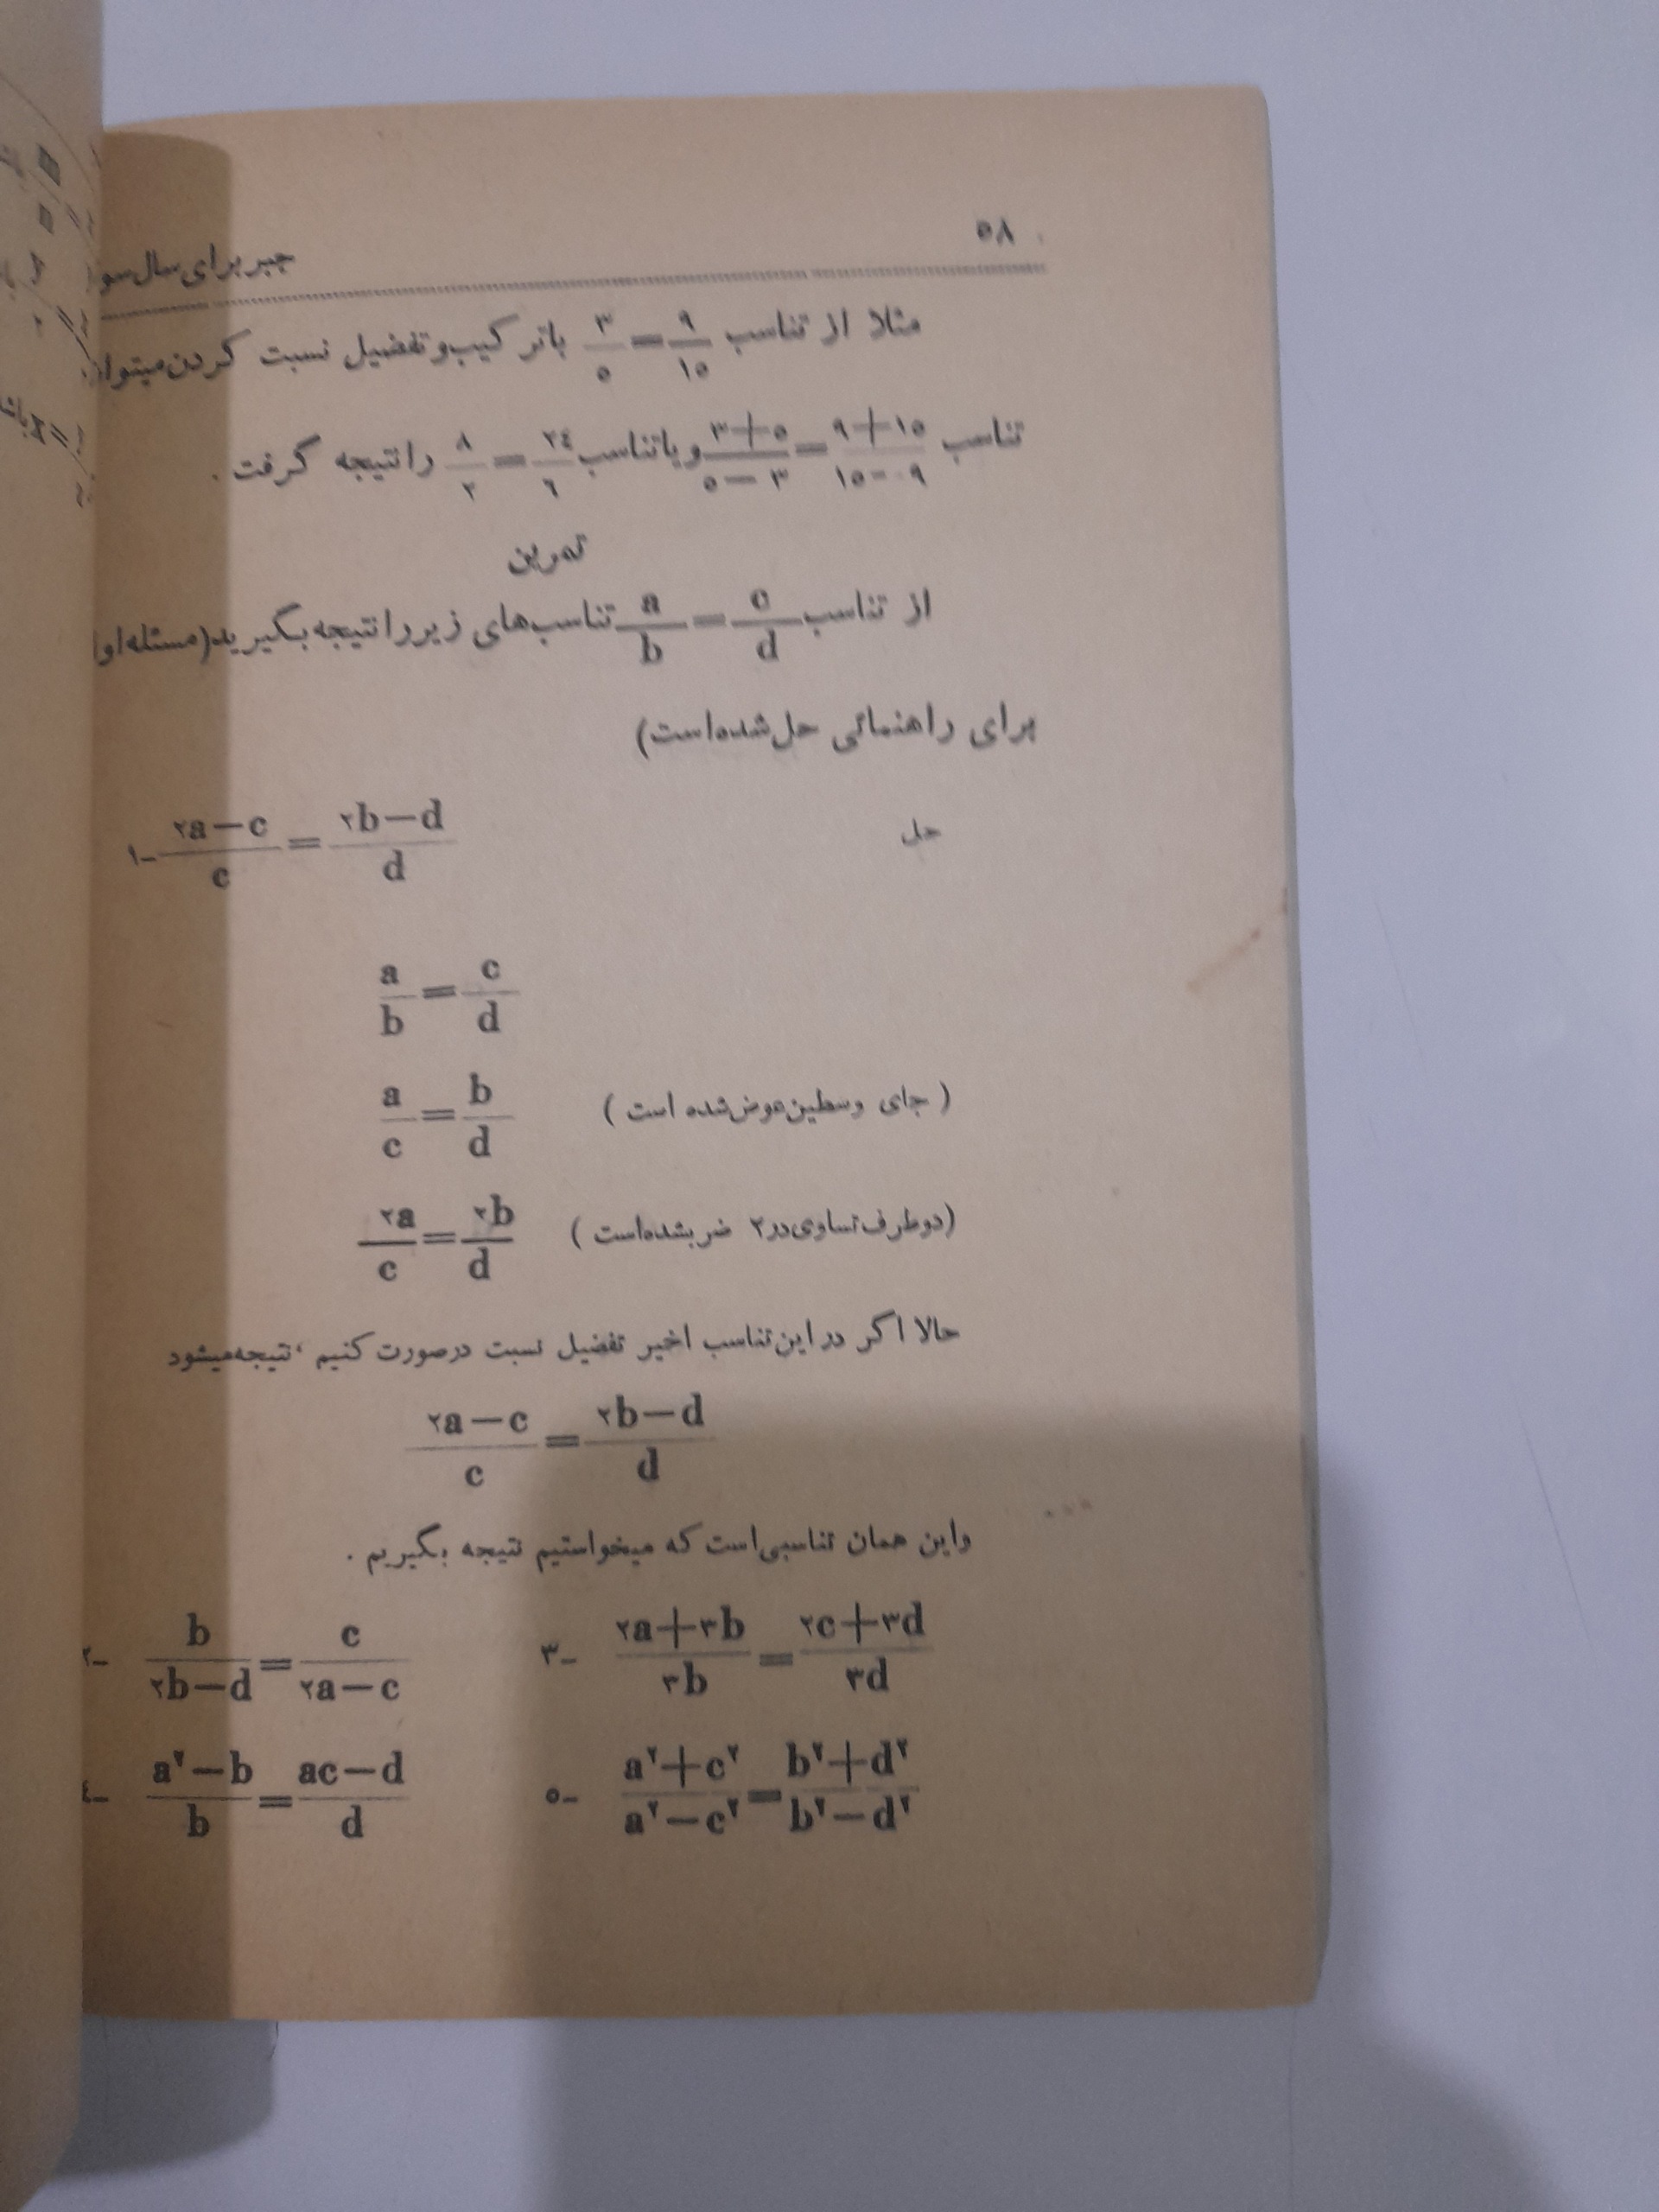 ۵۸
جبر برای سال سو
مثلا از تناسب ۳/۵ = ۹/۱۵ باتر کیب‌و تفضیل نسبت کردن میتوان
تناسب (۳+۵)/(۵−۳) = (۹+۱۵)/(۱۵−۹) و یا تناسب ۸/۲ = ۲٤/٦ را نتیجه گرفت .
تمرین
از تناسب a/b = c/d تناسب‌های زیر را نتیجه بگیرید (مسئله او
برای راهنمائی حل شده‌است)
۱− (۲a−c)/c = (۲b−d)/d حل
a/b = c/d
a/c = b/d ( جای وسطین عوض شده است )
۲a/c = ۲b/d (دوطرف تساوی در۲ ضربشده‌است )
حالا اگر در این تناسب اخیر تفضیل نسبت درصورت کنیم ، نتیجه میشود
(۲a−c)/c = (۲b−d)/d
واین همان تناسبی‌است که میخواستیم نتیجه بگیریم .
۲− b/(۲b−d) = c/(۲a−c) ۳− (۲a+۳b)/۳b = (۲c+۳d)/۳d
٤− (a²−b)/b = (ac−d)/d ۵− (a²+c²)/(a²−c²) = (b²+d²)/(b²−d²)